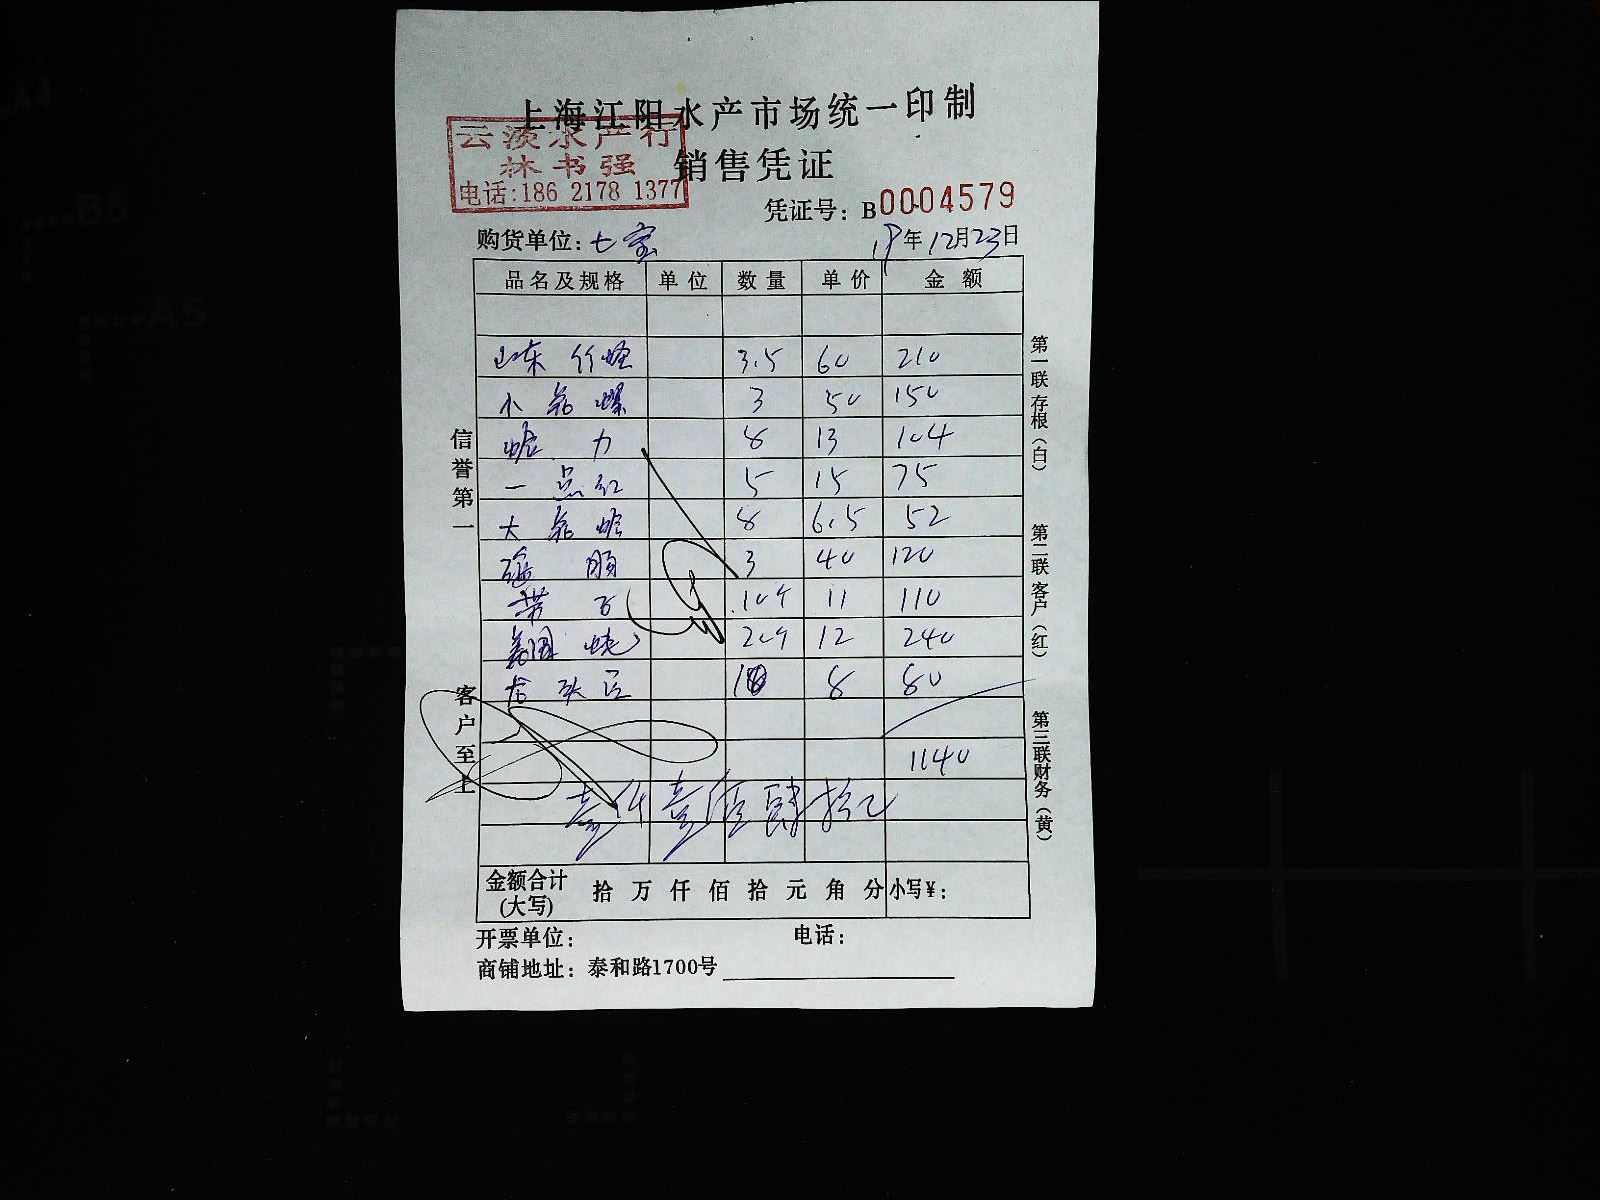 上海江阳水产市场统一印制
云淡水产行
林书强
电话:186 2178 1377
销售凭证
凭证号: B0004579
购货单位: 七宝
19年12月23日
品名及规格 单位 数量 单价 金额
山东 竹蛏 3.5 60 210
小 螺 3 50 150
力 8 13 104
一点红 5 15 75
大 蛤 8 6.5 52
3 40 120
带子 10个 11 110
20个 12 240
龙头 10 8 80
1140
壹仟壹佰肆拾元
金额合计(大写) 拾 万 仟 佰 拾 元 角 分 小写¥:
开票单位: 电话:
商铺地址: 泰和路1700号
信誉第一
客户至上
第一联 存根(白)
第二联 客户(红)
第三联 财务(黄)
A4
B5
A5